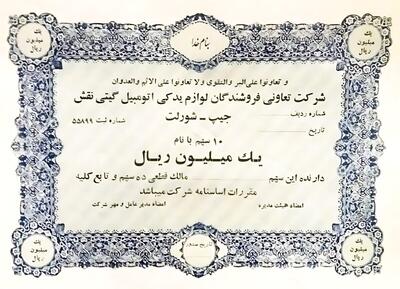 بنام خدا
یک میلیون ریال
یک میلیون ریال
و تعاونوا علی البر والتقوی ولا تعاونوا علی الاثم والعدوان
شرکت تعاونی فروشندگان لوازم یدکی اتومبیل گیتی نقش
شماره ردیف جیپ - شورلت شماره ثبت ۵۵۸۹۹
تاریخ
۱۰ سهم با نام
یک میلیون ریال
دارنده این سهم مالک قطعی ده سهم و تابع کلیه
مقررات اساسنامه شرکت میباشد
امضاء هیئت مدیره امضاء مدیر عامل و مهر شرکت
تاریخ صدور
یک میلیون ریال
یک میلیون ریال